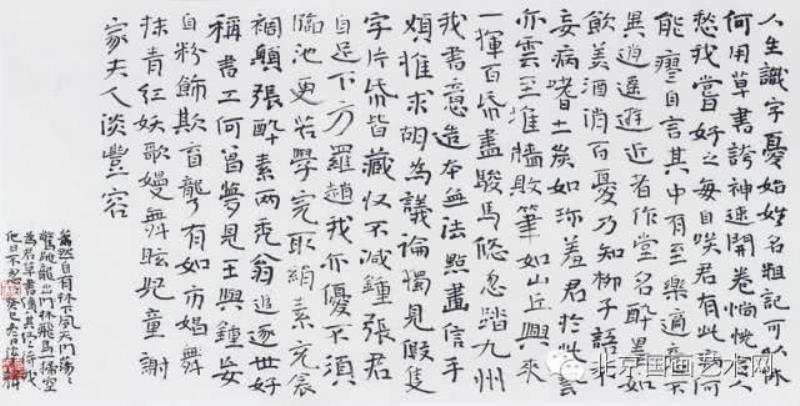 人生識字憂始姓名粗記可以休
何用草書誇神速開卷惝恍令人
愁我嘗好之每自咲君有此病何
能瘳自言其中有至樂適意不
異逍遥遊近者作堂名醉墨如
飲美酒消百憂乃知柳子語不
妄病嗜土炭如珍羞君於此藝
亦云至堆牆敗筆如山丘興來
一揮百紙盡駿馬倐忽踏九州
我書意造本無法點畫信手
煩推求胡為議論獨見假隻
字片紙皆藏收不減鍾張君
自足下方羅趙我亦優不須
臨池更苦學完取絹素充衾
裯顛張醉素兩禿翁追逐世好
稱書工何曾夢見王與鍾妄
自粉飾欺盲聾有如市娼舞
抹青紅妖歌嫚舞眩兒童謝
家夫人淡豐容
蕭然自有林下風天門蕩蕩
驚跳龍出門林飛鳥一掃空
為君草書續其終待我
他日不匆匆癸巳春日
北京国画艺术网